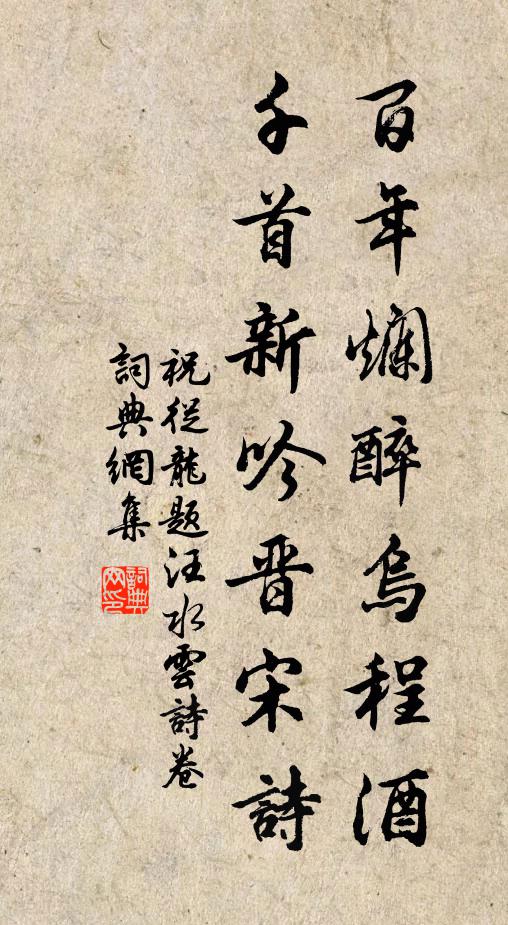 百年爛醉烏程酒
千首新吟晋宋詩
祝從龍題汪水雲詩卷
詞典網集
詞典
网印